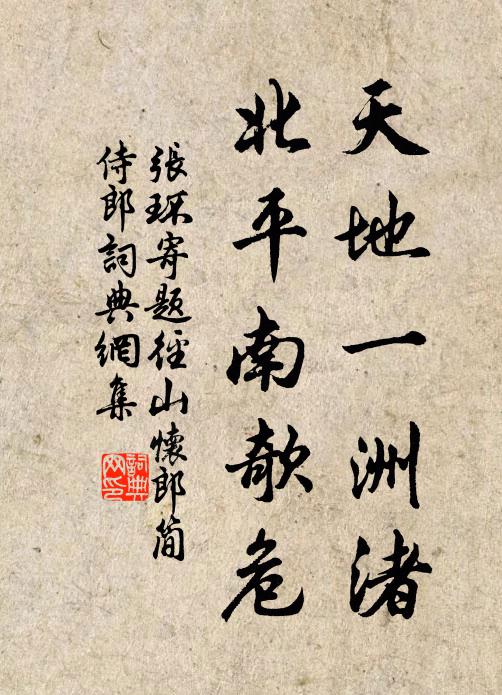 天地一洲渚
北平南欹危
張瑰寄題徑山懷郎簡
侍郎詞典網集
詞典網印